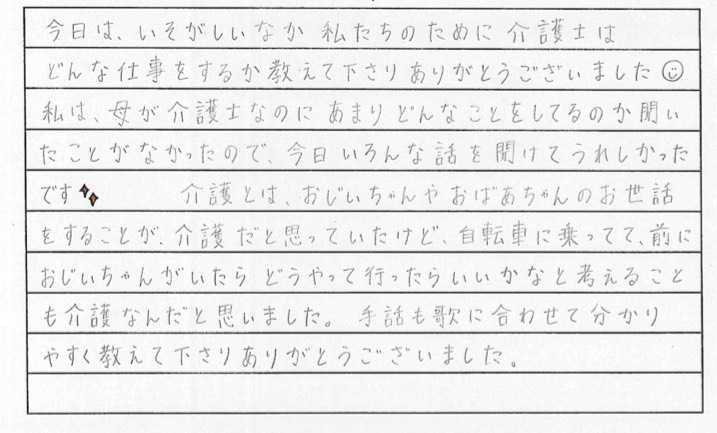 今日は、いそがしいなか 私たちのために 介護士は
どんな仕事をするか教えて下さりありがとうございました☺
私は、母が介護士なのに あまりどんなことをしてるのか聞い
たことがなかったので、今日いろんな話を聞けてうれしかった
です 介護とは、おじいちゃんや おばあちゃんのお世話
をすることが、介護だと思っていたけど、自転車に乗ってて、前に
おじいちゃんがいたら どうやって行ったらいいかなと考えること
も介護なんだと思いました。 手話も歌に合わせて分かり
やすく教えて下さりありがとうございました。